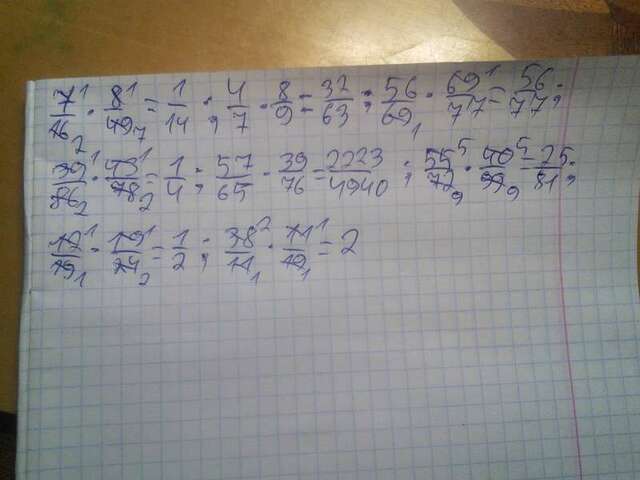 7¹/16₂ · 8¹/49₇ = 1/14 ; 4/7 · 8/9 = 32/63 ; 56/69₁ · 69¹/77 = 56/77 ;
39¹/86₂ · 43¹/78₂ = 1/4 ; 57/65 · 39/76 = 2223/4940 ; 55⁵/72₉ · 40⁵/99₉ = 25/81 ;
12¹/19₁ · 19¹/24₂ = 1/2 ; 38²/11₁ · 11¹/19₁ = 2